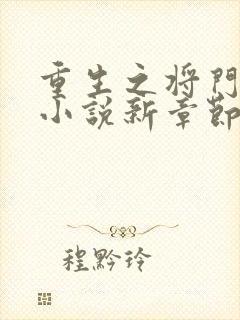 重生之将門
小説新章節
程黔玲